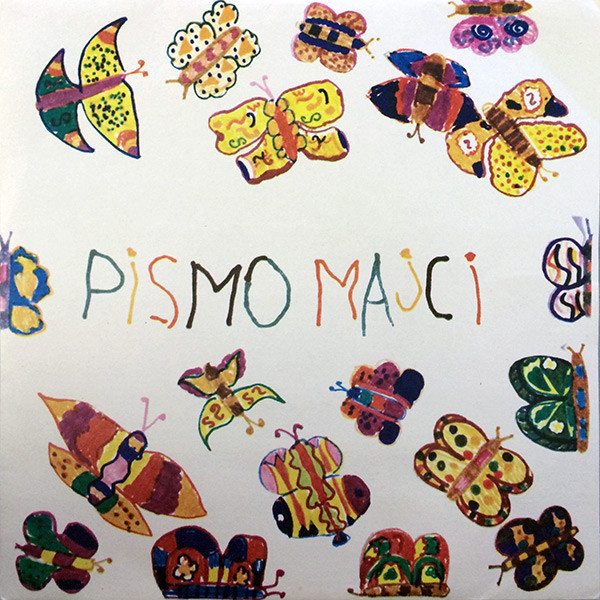 PiSMO MAjCi